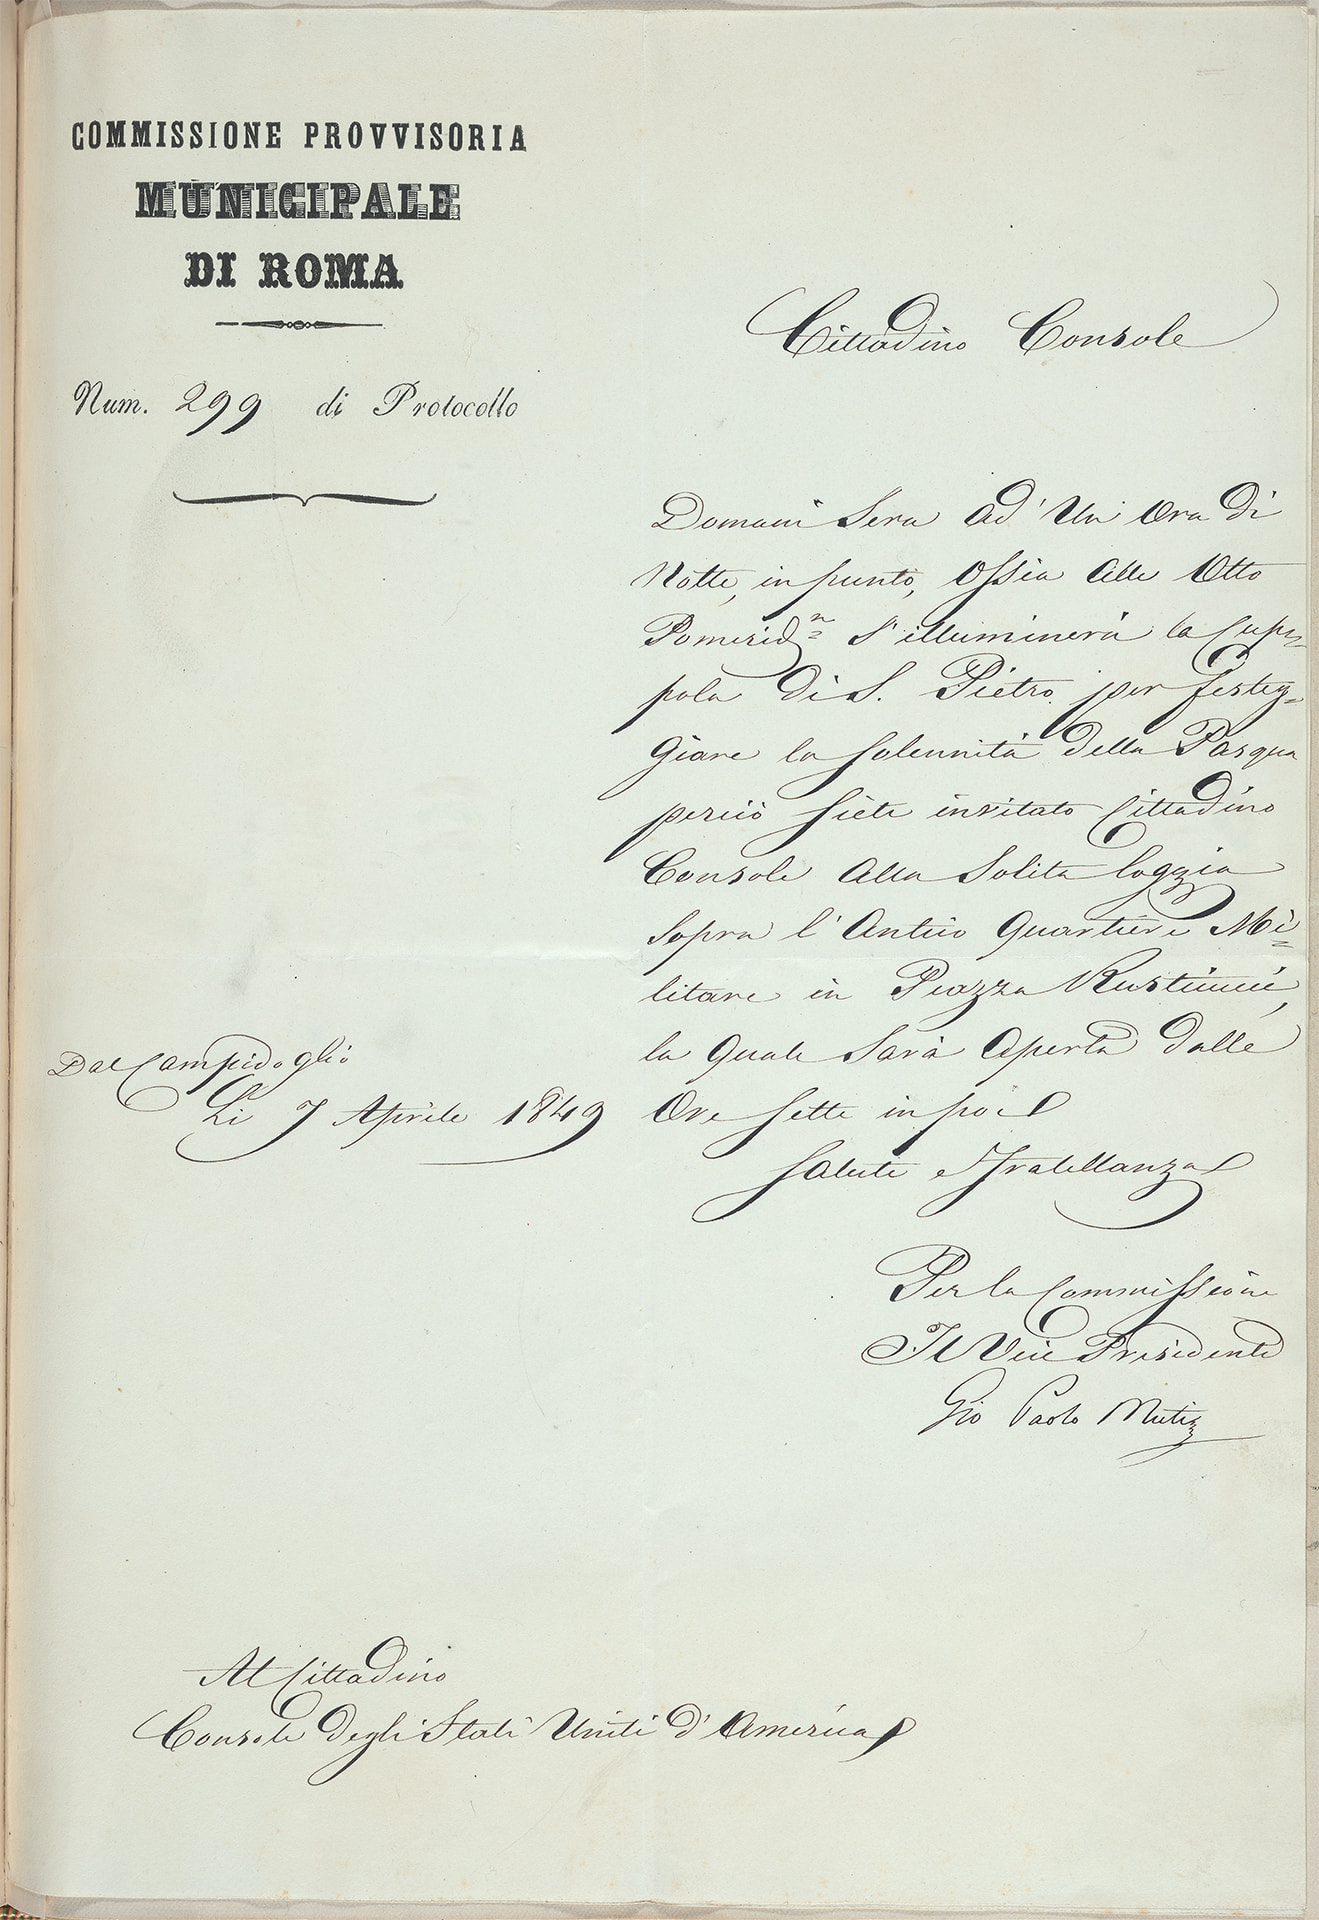 COMMISSIONE PROVVISORIA
MUNICIPALE
DI ROMA
Num. 299 di Protocollo
Cittadino Console
Domani Sera ad' Un' Ora Di
Notte, in punto, Ossia alle Otto
Pomerid.ne S'illuminerà la Cup=
pola Di S. Pietro per festeg=
giare la Solennità Della Pasqua
perciò siete invitato Cittadino
Console alla Solita loggia
sopra l'Antico Quartiere Mi=
litare in Piazza Rusticucci,
la quale Sarà aperta dalle
Ore sette in poi
Salute e Fratellanza
Dal Campidoglio
Li 7 Aprile 1849
Per la Commissione
Il Vice Presidente
Gio Paolo Muti
Al Cittadino
Console Degli Stati Uniti D'America